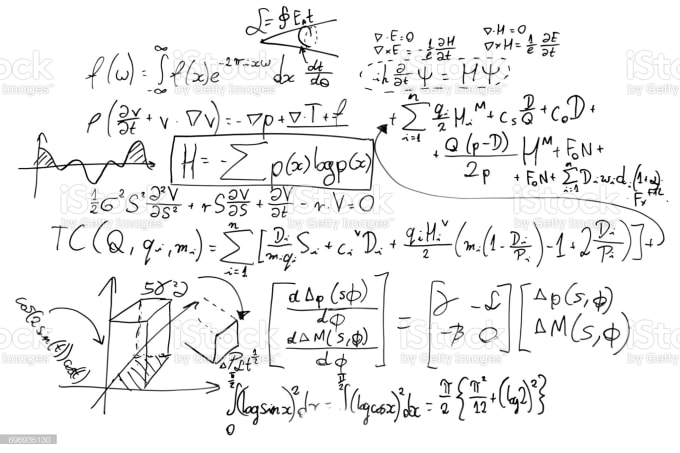 L = ∮ E_n t
∇·E=0 ∇·H=0
∇×E = -1/e ∂H/∂t ∇×H = 1/e ∂E/∂t
f(ω) = ∫_{-∞}^{∞} f(x)e^{-2πixω} dx dt/dθ
iħ ∂/∂t Ψ = HΨ
ρ(∂v/∂t + v·∇v) = -∇p + ∇·T + f
+ Σ_{i=1}^{n} q_i/2 H_i^M + C_s D/Q + C_0 D +
+ Q(p-D)/2p H^M + F_0 N +
H = -Σ p(x) log p(x)
+ F_0 N + Σ_{i=1}^{n} D_i w_i d_i
1/2 σ² S² ∂²V/∂S² + r S ∂V/∂S + ∂V/∂t - r·V = 0
TC(Q, q_i, m_i) = Σ_{i=1}^{n} [D_i/(m_i q_i) S_i + c_i^v D_i + q_i H_i^v/2 (m_i(1 - D_i/P_i) - 1 + 2 D_i/P_i)] +
cos(2sin(t))(cost)
[dΔp(s,ϕ)/dϕ
dΔM(s,ϕ)/dϕ] = [γ -L
-β 0] [Δp(s,ϕ)
ΔM(s,ϕ)]
∫_0^{π/2} (log sin x)² dx = ∫^{π/2} (log cos x)² dx = π/2 {π²/12 + (log 2)²}
iStock
by Getty Images™
696935130